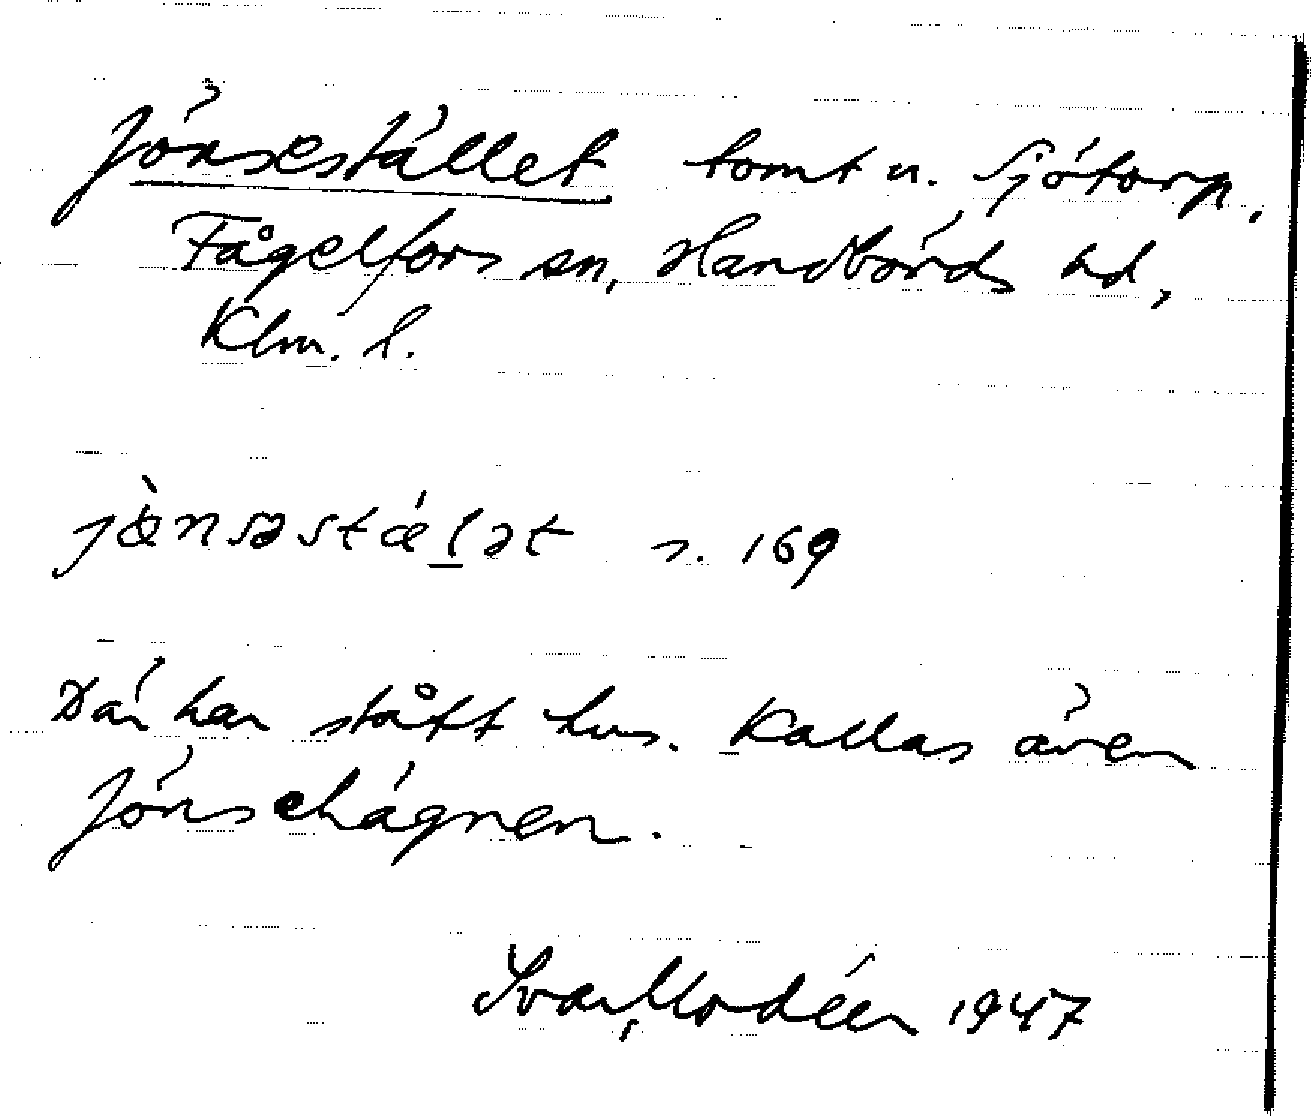 Jönsestället tomt u. Sjötorp,
Fågelfors sn, Handbörds hd,
Klm. l.
jö̀nsəstǽlət s. 169
Där har stått hus. Kallas även
Jönsehägnen.
Ivar Modéer 1947